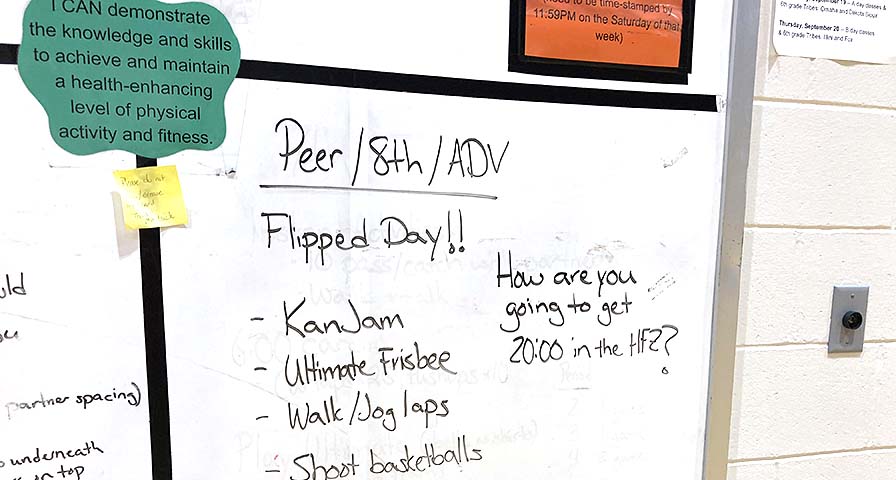 I CAN demonstrate
the knowledge and skills
to achieve and maintain
a health-enhancing
level of physical
activity and fitness.
to be time-stamped by
11:59PM on the Saturday of that
week)
& 6th grade Tribes: Omaha and Dakota Sioux
Thursday, September 20 – B day classes
& 6th grade Tribes: Illini and Fox
Please do not
Peer/8th/ADV
Flipped Day!!
- KanJam
- Ultimate Frisbee
- Walk/Jog laps
- Shoot basketballs
How are you
going to get
20:00 in the HFZ?
partner spacing)
underneath
on top